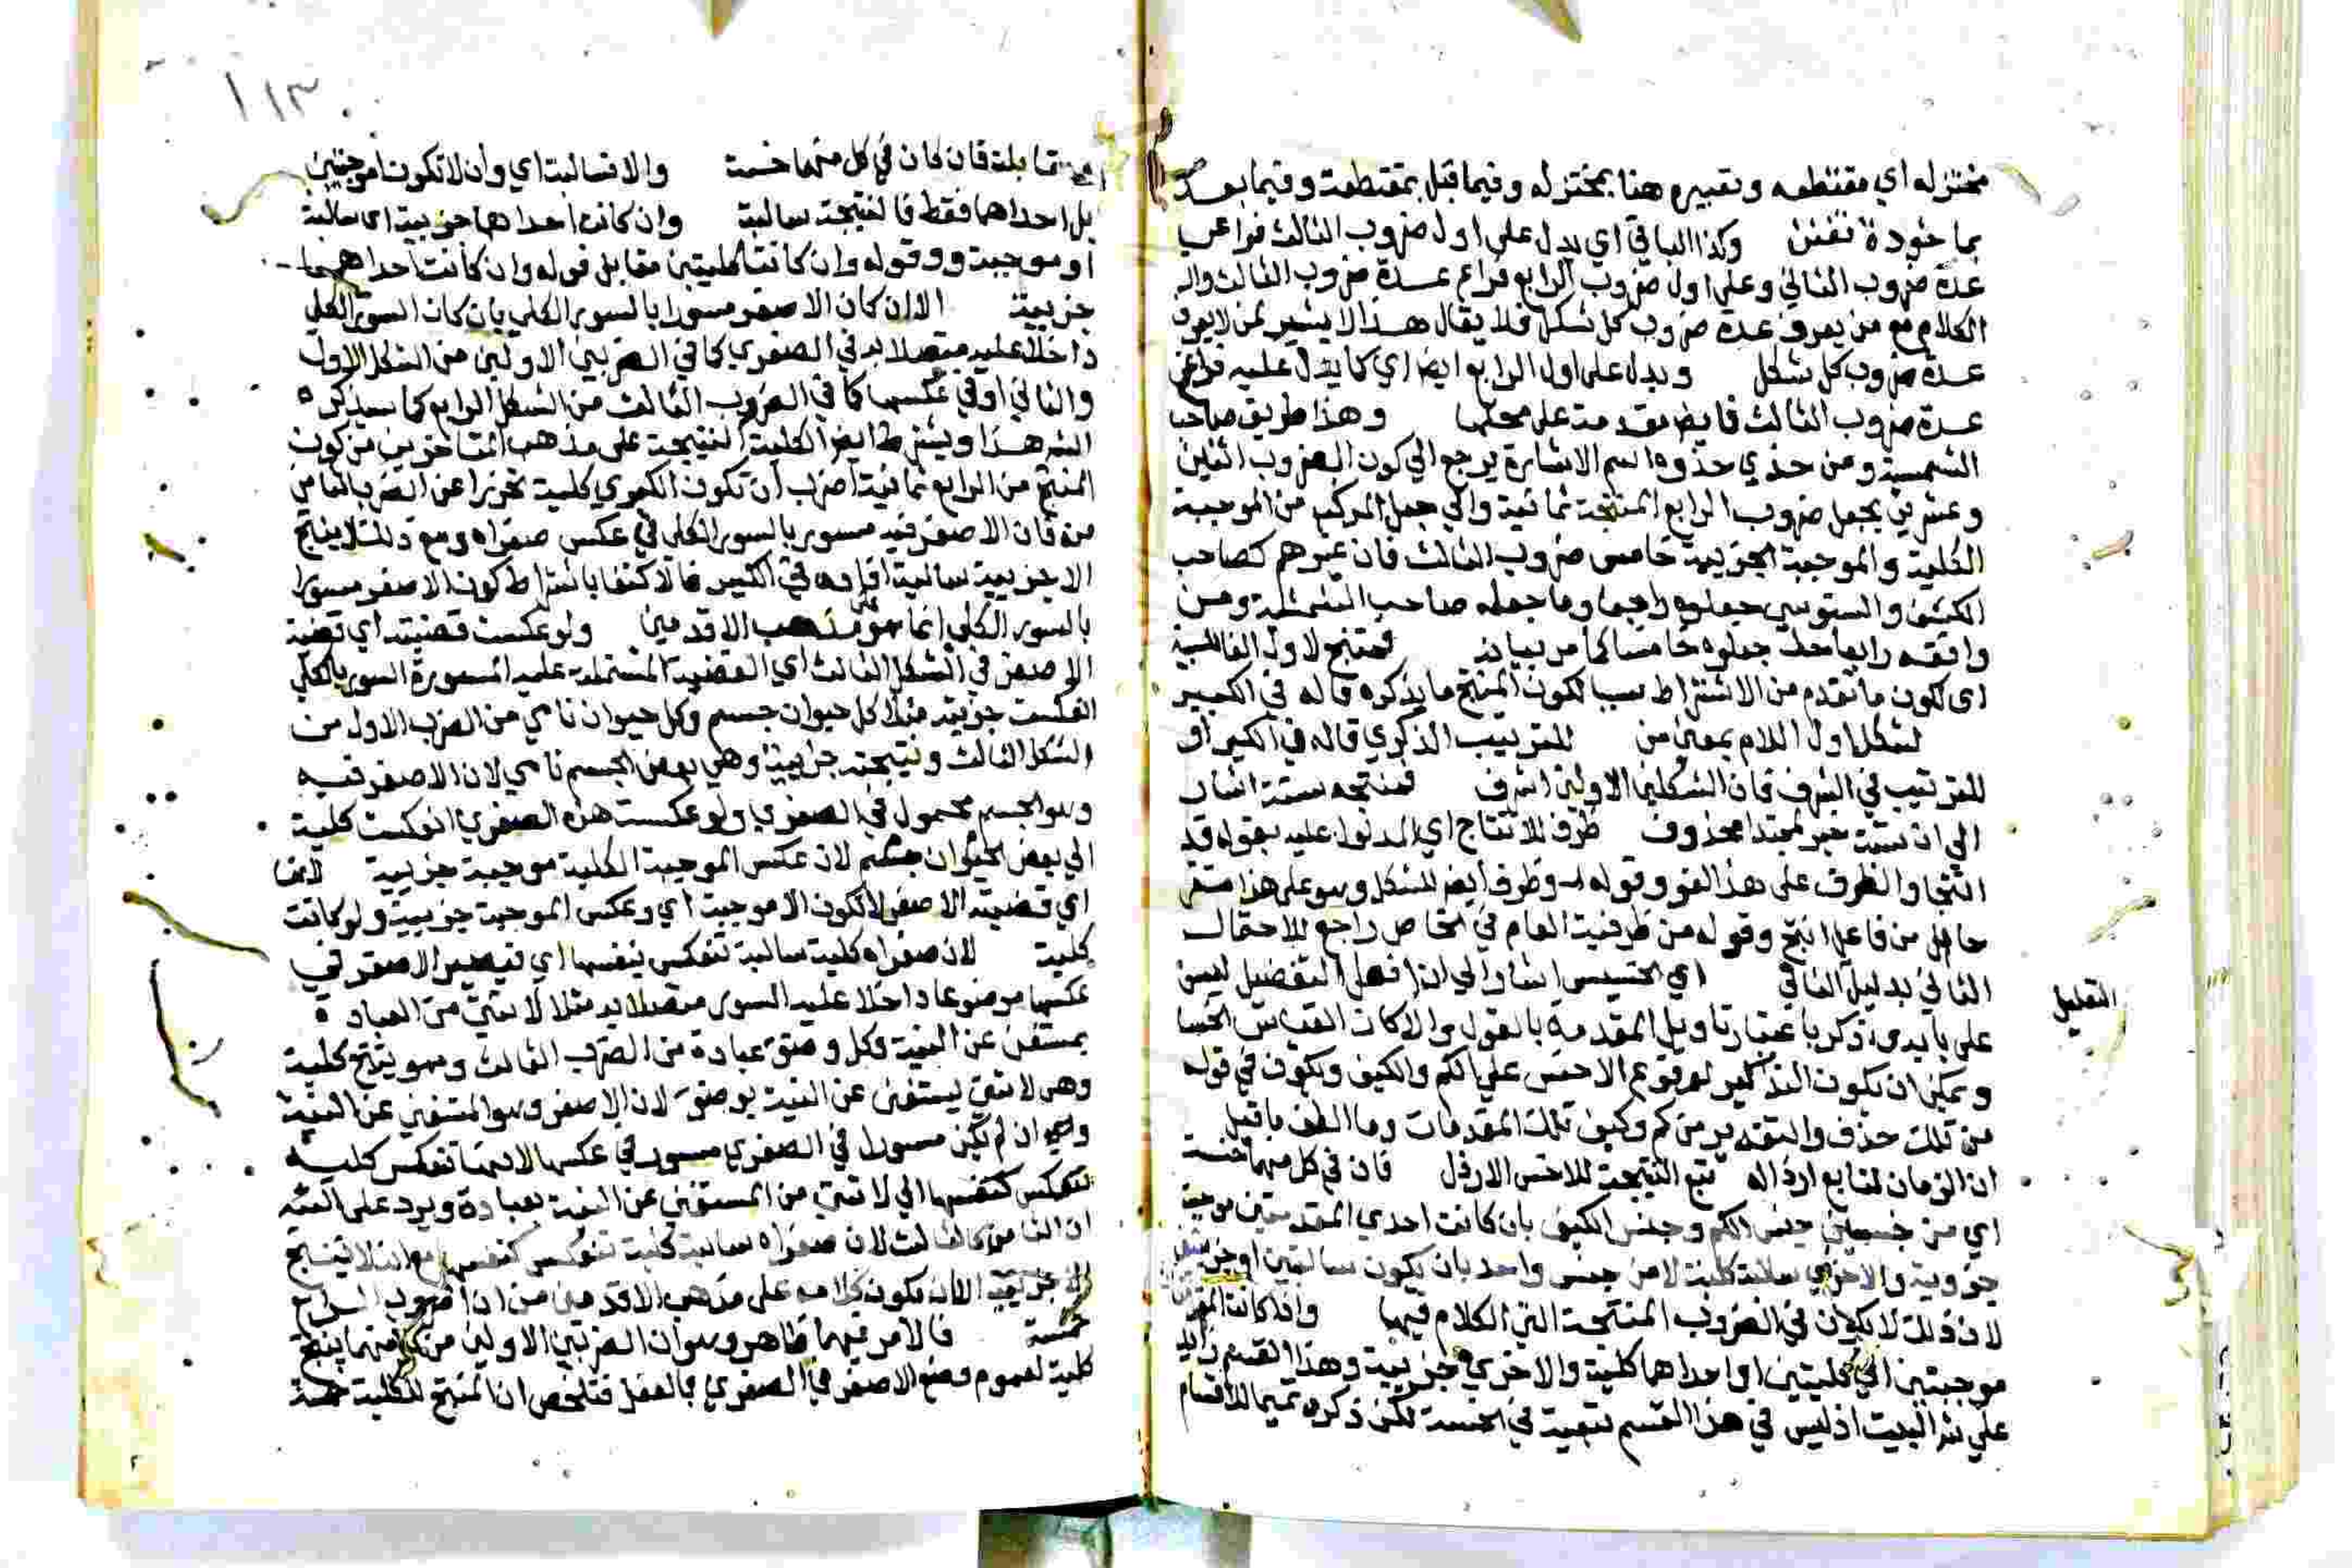 مختزله اي مقتطعه وتعبيره هنا بمختزله وفيما قبل بمقتطعة وفيما بعد
بماخوذة تفنن وكذا الباقي اي يدل على اول ضروب الثالث فراعى
عدة ضروب الثاني وعلى اول ضروب الرابع فراعى عدة ضروب الثالث
الكلام مع من يعرف عدة ضروب كل شكل فلا يقال هذا لا يشير لمن لا يعرف
عدة ضروب كل شكل ويدل على اول الرابع ايضا اي كما يدل عليه فراعى
عدة ضروب الثالث فايضا مقدمة على محلها وهذا طريق صاحب
الشمسية ومن حذي حذوه اسم الاشارة يرجع الي كون الضروب اثنين
وعشرين بجعل ضروب الرابع المنتجة ثمانية والي جعل المركب من الموجبة
الكلية والموجبة الجزيية خامس ضروب الثالث فان غيرهم كصاحب
الكشف والسنوسي جعلوه رابعا وما جعله صاحب الشمسية ومن
وافقه رابعا جعلوه خامسا كما مر بيانه فمنتج لاول الفا للسببية
اى لكون ما تقدم من الاشتراط سببا لكون المنتج ما يذكره قاله في الكبير
لشكل اول اللام بمعنى من للترتيب الذكري قاله في الكبير او
للترتيب في الشرف فان الشكلين الاولين اشرف فمنتجه ستة اشار
الي ان ستة خبر لمبتدا محذوف ظرف للانتاج اي المدلول عليه بقوله قد
انتجا والظرف على هذا لغو وقوله وظرف ايضا للشكل وهو على هذا مستقر
حال من فاعل انتج وقوله من ظرفية العام في الخاص راجع للاحتمال
الثاني بدليل اي الخسيس اشار الي ان افعل التفضيل ليس
التعليل
على بابه ذكر باعتبار تاويل المقدمة بالقول والا كان القياس الخسا
ويمكن ان يكون التذكير لوقوع الاخس على الكم والكيف ويكون في قوله
من تلك حذف والتقدير من كم وكيف تلك المقدمات وما الطف ما قيل
ان الزمان لتابع ارذاله تبع النتيجة للاخس الارذل فان في كل منهما خسة
اي من جنسين جنس الكم وجنس الكيف بان كانت احدي المقدمتين موجبة
جزوية والاخري سالبة كلية لا من جنس واحد بان يكون سالبتين او
لان ذلك لا يكون في الضروب المنتجة التي الكلام فيها وان كانت
موجبتين اي كليتين او احداهما كلية والاخري جزيية وهذا القسم زايد
علي البيت اذ ليس في هذا القسم تبعية في الخسة لكن ذكره تتميما للاقسام
١١٣
مقابلة فان كان في كل منهما خسة والا فسالبة اي وان لا تكون موجبتين
بل احداهما فقط فالنتيجة سالبة وان كانت احداهما جزيية اي سالبة
او موجبة وقوله وان كانت كليتين مقابل قوله وان كانت احداهما
جزيية الا ان كان الاصغر مسورا بالسور الكلي بان كان السور الكلي
داخلا عليه متصلا به في الصغري كما في الضربين الاولين من الشكل الاول
والثاني او في عكسها كما في الضروب الثالث من الشكل الرابع كما سيذكره
الش هذا ويشترط ايضا لكلية النتيجة على مذهب المتاخرين من كون
المنتج من الرابع ثمانية اضرب ان تكون الكبري كلية تحرزا عن الضرب الثامن
منه فان الاصغر فيه مسور بالسور الكلي في عكس صغراه ومع ذلك لا ينتج
الا جزيية سالبة افاده في الكبير فالاكتفا باشتراط كون الاصغر مسورا
بالسور الكلي انما هو مذهب الاقدمين ولو عكست قضيته اي قضية
الاصغر في الشكل الثالث اي القضية المشتملة عليه المسورة السور بالكلي
انعكست جزيية مثلا كل حيوان جسم وكل حيوان نامي من الضرب الاول من
الشكل الثالث ونتيجته جزيية وهي بعض الجسم نامي لان الاصغر فيه
وهو الجسم محمول في الصغري ولو عكست هذه الصغري انعكست كلية
الي بعض الحيوان جسم لان عكس الموجبة الكلية موجبة جزيية لانها
اي قضية الاصغر لا تكون الا موجبة اي وعكس الموجبة جزيية ولو كانت
كلية لان صغراه كلية سالبة تنعكس بنفسها اي فيصير الاصغر في
عكسها موضوعا داخلا عليه السور متصلا به مثلا لا شيء من العبادة
بمستغن عن النية وكل وضوء عبادة من الضرب الثالث وهو ينتج كلية
وهي لا شيء ليستغني عن النية بوضوء لان الاصغر وهو المستغني عن النية
وان لم يكن مسورا في الصغري مسور في عكسها لانها تنعكس كلية
تنعكس كنفسها الي لا شيء من المستغني عن النية بعبادة ويرد على الش
ان الثامن كالثالث لان صغراه سالبة كلية تنعكس كنفسها مع انه لا ينتج
الا جزيية الا ان يكون كلامه على مذهب الاقدمين من ان اضروب الرابع
خمسة فالامر فيهما ظاهر وهو ان الضربين الاولين من كل منهما ينتج
كلية لعموم وضع الاصغر في الصغري بالفعل فتلخص ان المنتج للكلية خمسة